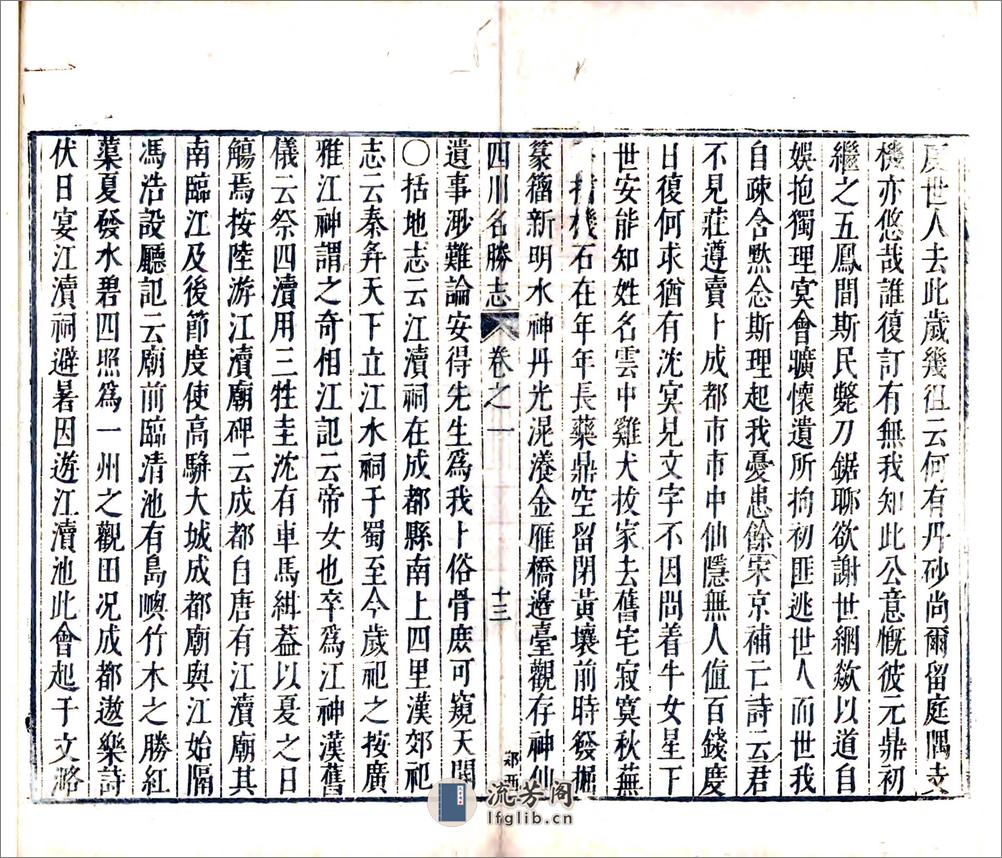 世人去此歲幾徂云何有丹砂尚爾留庭隅
機亦悠哉誰復訂有無我知此公意慨彼元鼎初
繼之五鳳間斯民斃刀鋸聊欲謝世網歘以道自
娛抱獨理冥會曠懷遺所拘初匪逃世人而世我
自疎含黙念斯理起我憂患餘宋京補亡詩云君
不見莊遵賣卜成都市市中仙隱無人値百錢度
日復何求猶有沈冥見文字不因問着牛女星下
世安能知姓名雲中雞犬拔家去舊宅寂寞秋蕪
機石在年年長藥鼎空留閉黃壤前時發掘
篆籀新明水神丹光滉瀁金雁橋邊臺觀存神仙
四川名勝志 卷之一 十三
遺事渺難論安得先生爲我卜俗骨庶可窺天閽
○括地志云江瀆祠在成都縣南上四里漢郊祀
志云秦并天下立江水祠于蜀至今歲祀之按廣
雅江神謂之奇相江記云帝女也卒爲江神漢舊
儀云祭四瀆用三牲圭沈有車馬紺葢以夏之日
觴焉按陸游江瀆廟碑云成都自唐有江瀆廟其
南臨江及後節度使高駢大城成都廟與江始隔
馮浩設廳記云廟前臨清池有島嶼竹木之勝紅
蕖夏發水碧四照爲一州之觀田况成都遨樂詩
伏日宴江瀆祠避暑因遊江瀆池此會起于文潞
流芳阁
lfglib.cn